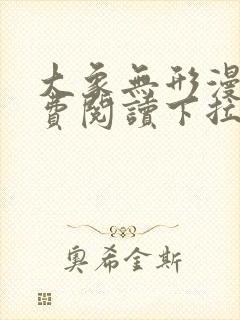 大象無形漫
費閱讀下拉
奧希金斯